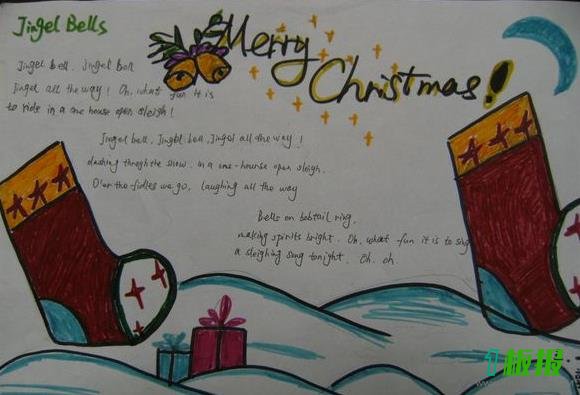 Jingel Bells
Merry
Christmas!
Jingel bell. Jingel Bell
Jingel all the way! Oh, what fun it is
to ride in a one house open sleigh!
Jingel bell, Jingel bell, Jingel all the way!
dashing throgh the snow. in a one-hourse open sleigh.
O'er the fidles we go, laughing all the way
Bells on bobtail ring,
making spirits bright. Oh, what fun it is to sing
a sleighing song tonight. Oh. oh.
板报